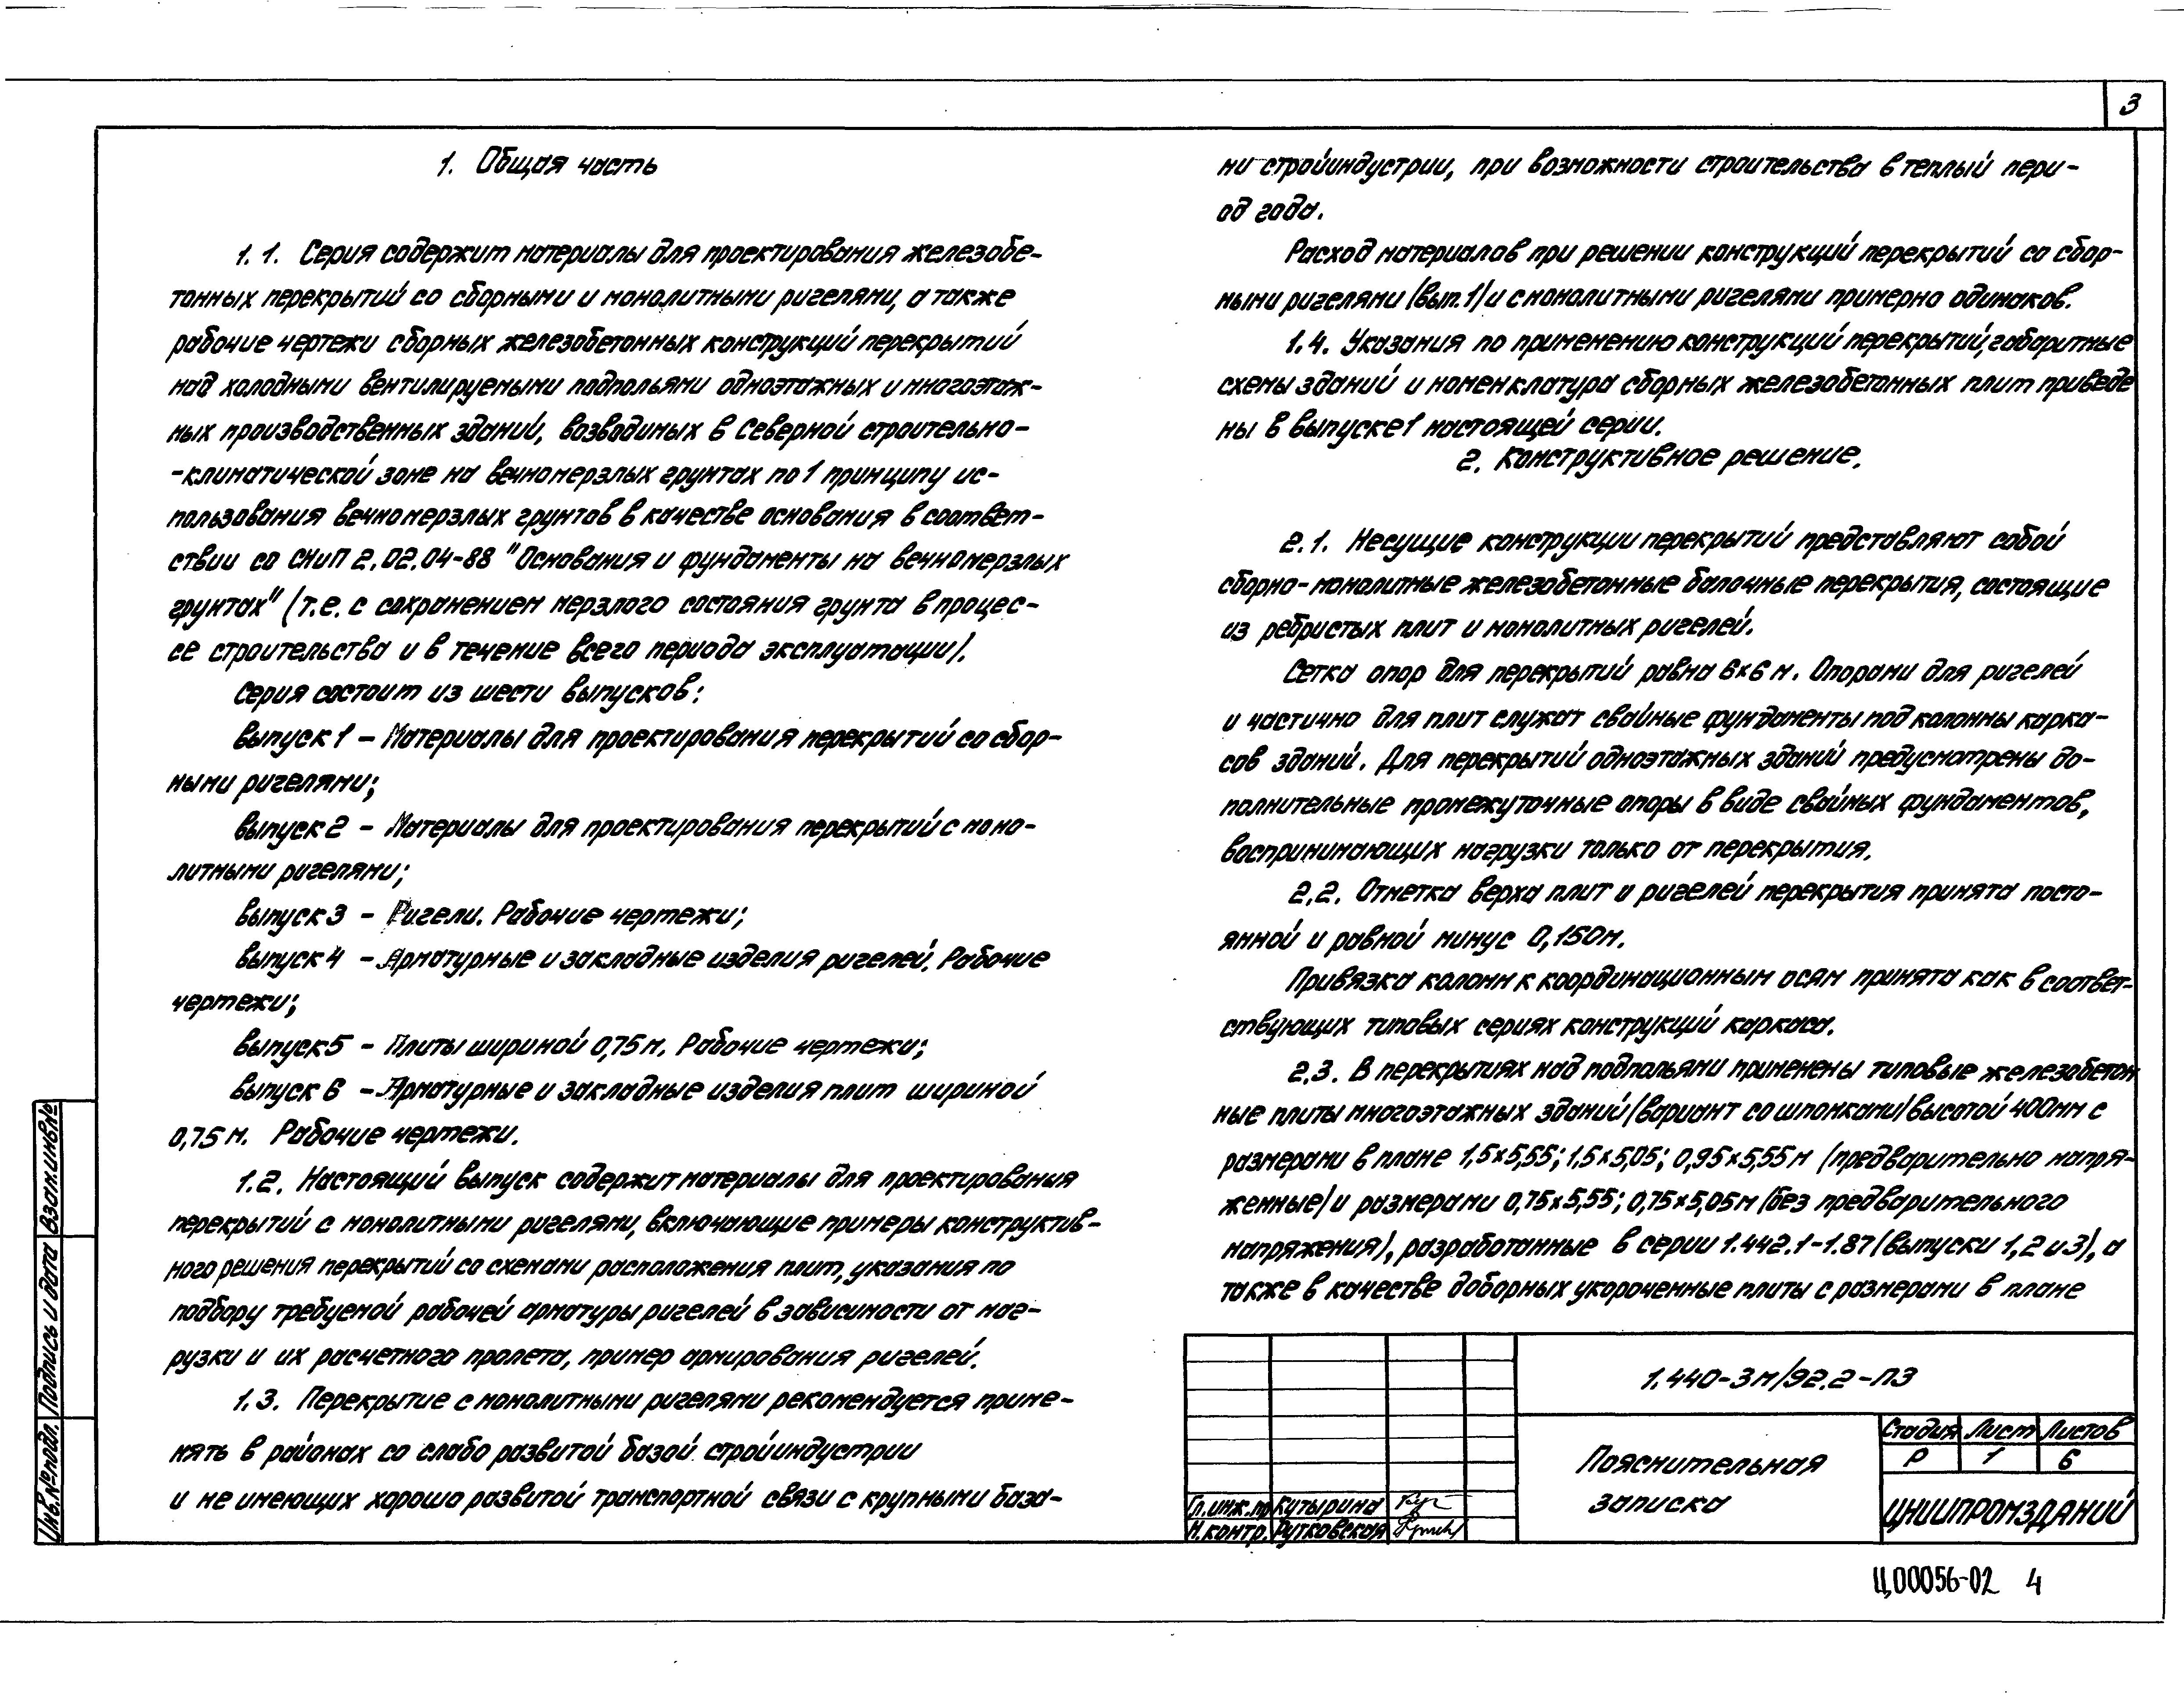 3
1. Общая часть
1.1. Серия содержит материалы для проектирования железобе-
тонных перекрытий со сборными и монолитными ригелями, а также
рабочие чертежи сборных железобетонных конструкций перекрытий
над холодными вентилируемыми подпольями одноэтажных и многоэтаж-
ных производственных зданий, возводимых в Северной строительно-
-климатической зоне на вечномерзлых грунтах по 1 принципу ис-
пользования вечномерзлых грунтов в качестве основания в соответ-
ствии со СНиП 2.02.04-88 "Основания и фундаменты на вечномерзлых
грунтах" (т.е. с сохранением мерзлого состояния грунта в процес-
се строительства и в течение всего периода эксплуатации).
Серия состоит из шести выпусков:
выпуск 1 – Материалы для проектирования перекрытий со сбор-
ными ригелями;
выпуск 2 – Материалы для проектирования перекрытий с моно-
литными ригелями;
выпуск 3 – Ригели. Рабочие чертежи;
выпуск 4 – Арматурные и закладные изделия ригелей. Рабочие
чертежи;
выпуск 5 – Плиты шириной 0,75 м. Рабочие чертежи;
выпуск 6 – Арматурные и закладные изделия плит шириной
0,75 м. Рабочие чертежи.
1.2. Настоящий выпуск содержит материалы для проектирования
перекрытий с монолитными ригелями, включающие примеры конструктив-
ного решения перекрытий со схемами расположения плит, указания по
подбору требуемой рабочей арматуры ригелей в зависимости от наг-
рузки и их расчетного пролета, пример армирования ригелей.
1.3. Перекрытие с монолитными ригелями рекомендуется приме-
нять в районах со слабо развитой базой стройиндустрии
и не имеющих хорошо развитой транспортной связи с крупными база-
ми стройиндустрии, при возможности строительства в теплый пери-
од года.
Расход материалов при решении конструкций перекрытий со сбор-
ными ригелями (вып. 1) и с монолитными ригелями примерно одинаков.
1.4. Указания по применению конструкций перекрытий, габаритные
схемы зданий и номенклатура сборных железобетонных плит приведе
ны в выпуске 1 настоящей серии.
2. Конструктивное решение.
2.1. Несущие конструкции перекрытий представляют собой
сборно-монолитные железобетонные балочные перекрытия, состоящие
из ребристых плит и монолитных ригелей.
Сетка опор для перекрытий равна 6×6 м. Опорами для ригелей
и частично для плит служат свайные фундаменты под колонны карка-
сов зданий. Для перекрытий одноэтажных зданий предусмотрены до-
полнительные промежуточные опоры в виде свайных фундаментов,
воспринимающих нагрузки только от перекрытия.
2.2. Отметка верха плит и ригелей перекрытия принята посто-
янной и равной минус 0,150м.
Привязка колонн к координационным осям принята как в соответ-
ствующих типовых сериях конструкций каркаса.
2.3. В перекрытиях над подпольями применены типовые железобетон
ные плиты многоэтажных зданий (вариант со шпонками) высотой 400мм с
размерами в плане 1,5×5,55; 1,5×5,05; 0,95×5,55 м (предварительно напря-
женные) и размерами 0,75×5,55; 0,75×5,05м (без предварительного
напряжения), разработанные в серии 1.442.1-1.87 (выпуски 1,2 и 3), а
также в качестве доборных укороченные плиты с размерами в плане
1.440-3м/92.2-ПЗ
Пояснительная
записка
Стадия Лист Листов
Р 1 6
ЦНИИПРОМЗДАНИЙ
Гл.инж.пр Кутырина
Н.контр. Рутковская
Взам.инв.№
Подпись и дата
Инв.№подл.
Ц00056-02 4